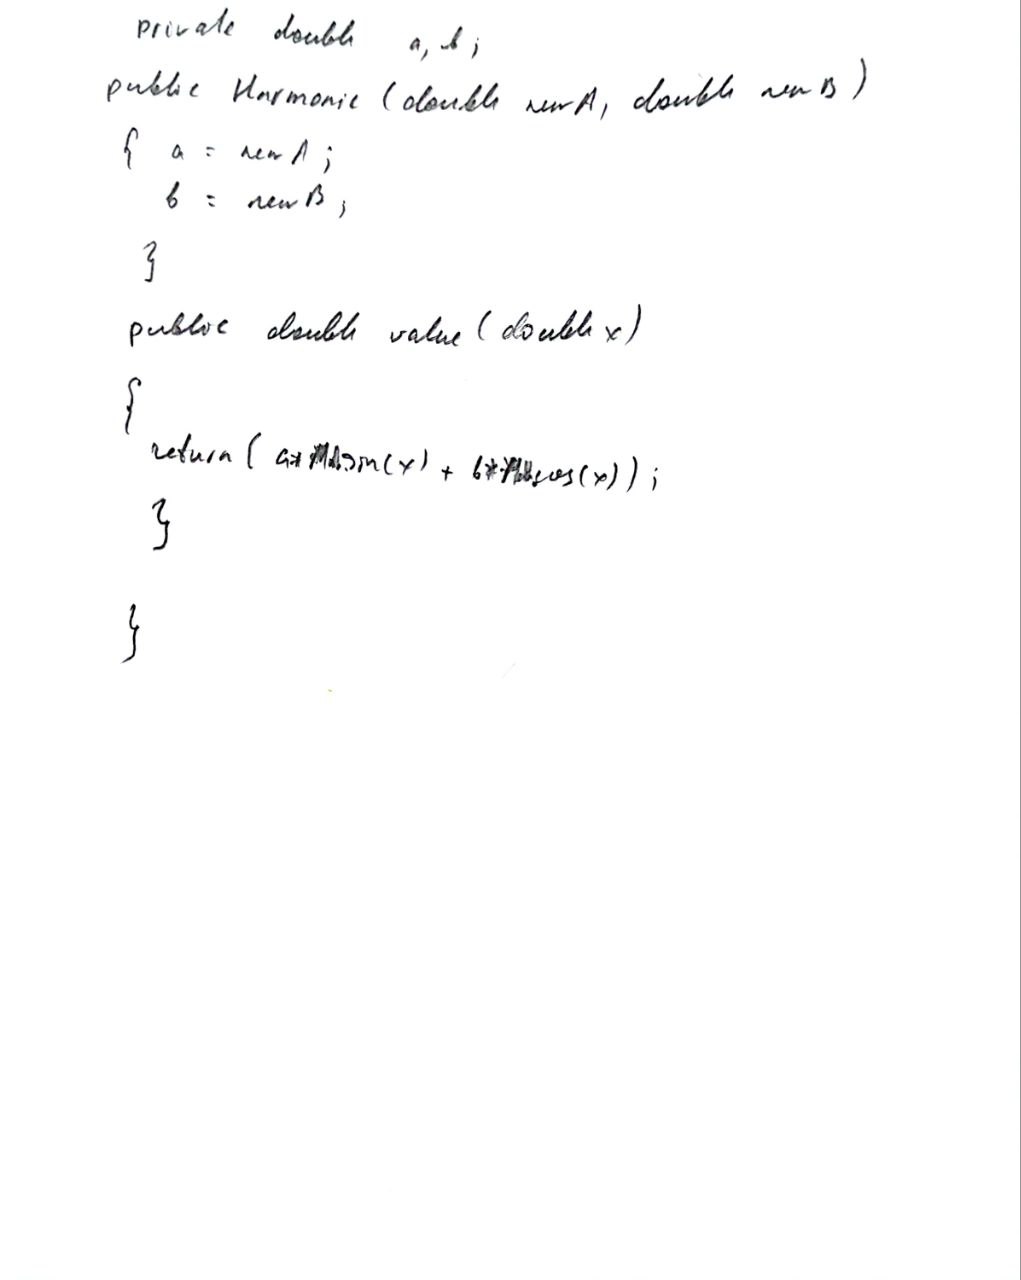 private double a, b;
public Harmonic (double newA, double newB)
{ a = newA;
b = newB;
}
public double value (double x)
{
return ( a* sin(x) + b* cos(x) ) ;
}
}